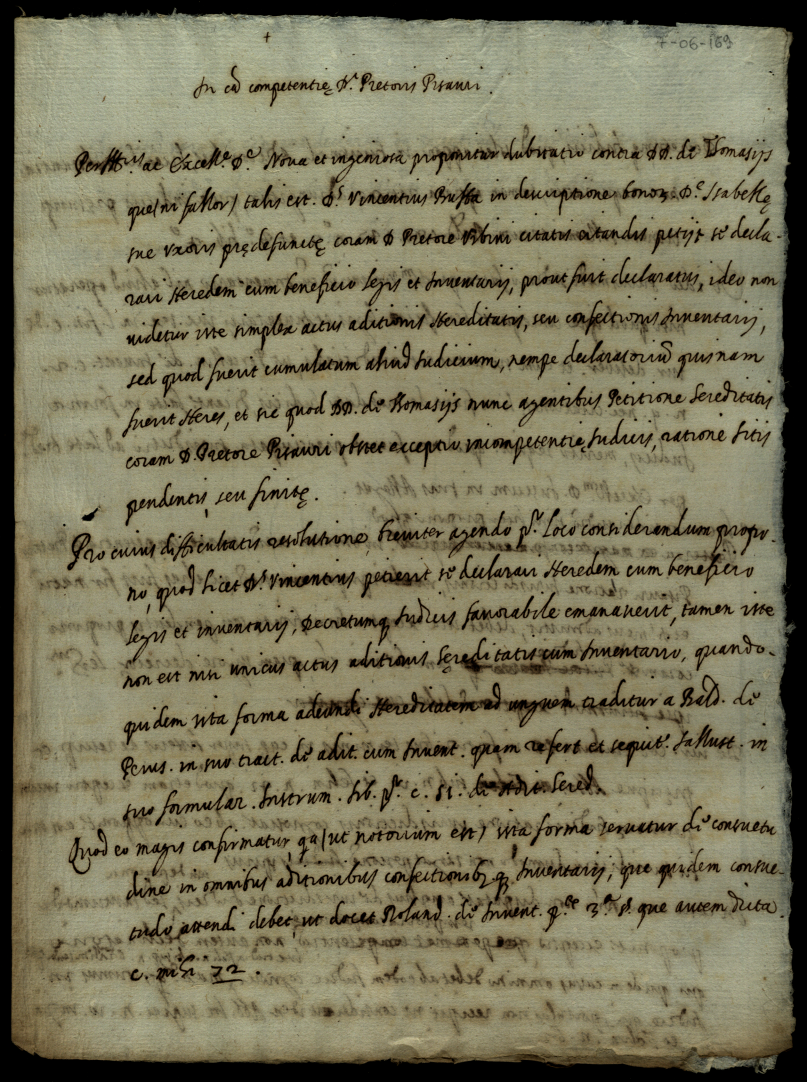 +
7-06-169
In cã competentię D. Pretoris Pisauri.
PerIll.ris ac Excell.e D.e Nova et ingeniosa proponitur dubitatio contra DD. de Thomasijs
que (ni fallor) talis est. D.s Vincentius in descriptione bonor. D.e Isabellę
sue Uxoris prędefunctę coram D. Pretore Urbini citatis citandis petijt se decla-
rari Heredem cum beneficio legis et Inventarij, prout fuit declaratus, ideo non
videtur iste simplex actus aditionis Hereditatis, seu confectionis Inventarij,
sed quod fuerit cumulatum aliud Iudicium, nempe declaratoriũ quisnam
fuerit Heres, et sic quod DD. de Thomasijs nunc agentibus Petitione hereditatis
coram D. Pretore Pisauri obstet exceptio incompetentię Iudicis, ratione litis
pendentis, seu finitę.
Pro cuius difficultatis resolutione, breviter agendo p.o loco considerandum propo-
no, quod licet D.s Vincentius petierit se declarari Heredem cum beneficio
legis et inventarij, Decretumq. Iudicis favorabile emanaverit, tamen iste
non est nisi unicus actus aditionis hęreditatis cum Inventario, quando-
quidem ista forma adeundi Hereditatem ad unguem traditur a Bald. de
Perus. in suo tract. de adit. cum Invent. quam refert et sequit.r Sallust. in
suo formular. Instrum. lib. p.o c. 51. de Adit. hered.
Quod eo magis confirmatur, qa (ut notorium est) ista forma servatur de consuetu
dine in omnibus aditionibus confectionib. q. Inventarij, que quidem consue-
tudo attendi debet, ut docet Roland. de Invent. p.te 3.a que autem dicta
c. mihi 72.